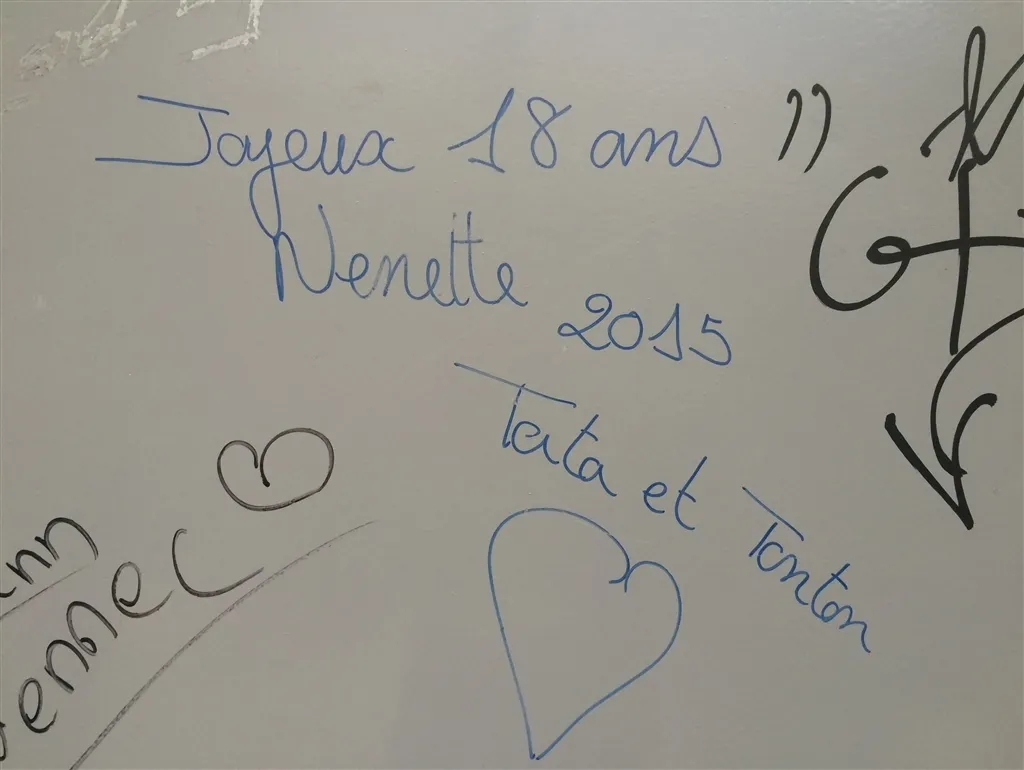 Joyeux 18 ans
Nenette
2015
Tata et Tonton